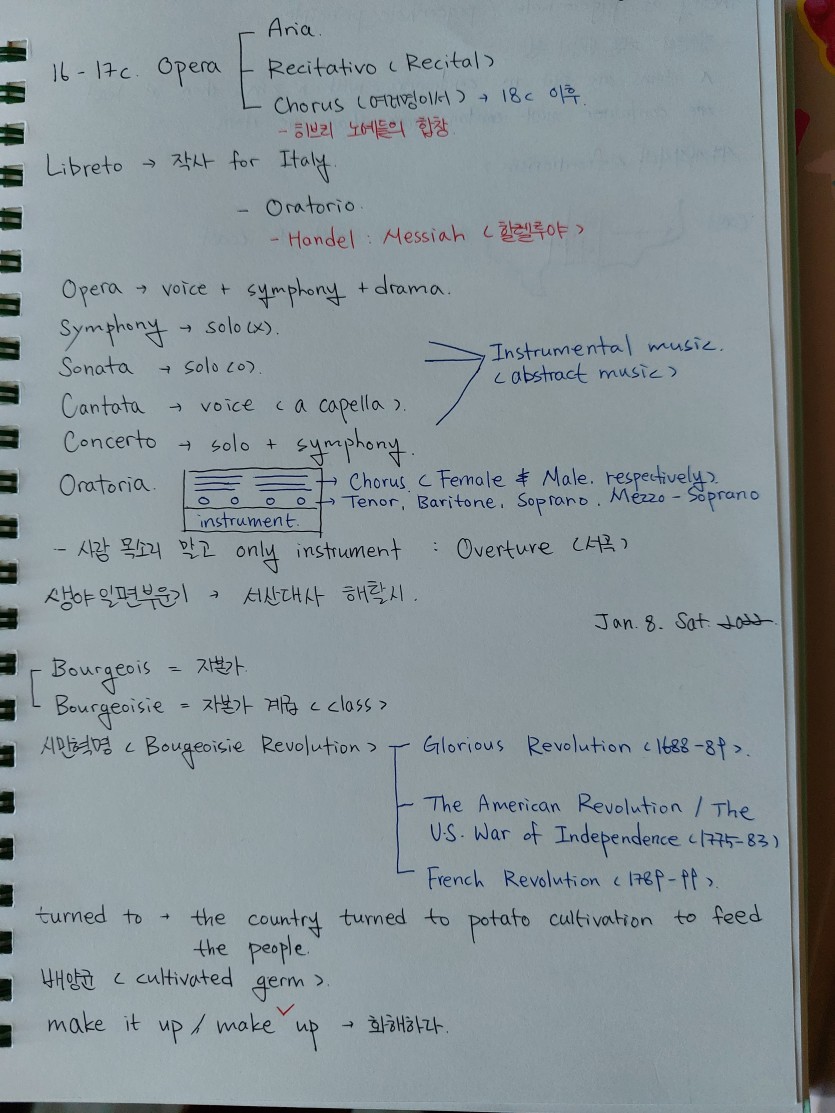 Aria.
16 - 17c. Opera
Recitativo (Recital)
Chorus (여러명이서) → 18c 이후.
- 히브리 노예들의 합창
Libreto → 작사 for Italy.
- Oratorio.
- Handel : Messiah (할렐루야)
Opera → voice + symphony + drama.
Symphony → solo(x).
Sonata → solo(o).
Instrumental music.
(abstract music)
Cantata → voice (a capella).
Concerto → solo + symphony.
Oratoria.
→ Chorus (Female & Male. respectively).
→ Tenor, Baritone, Soprano, Mezzo-Soprano
instrument.
- 사람 목소리 말고 only instrument : Overture (서곡)
생야일편부운기 → 서산대사 해탈시.
Jan. 8. Sat. 2022
Bourgeois = 자본가.
Bourgeoisie = 자본가 계급 (class)
시민혁명 (Bougeoisie Revolution)
Glorious Revolution (1688-89).
The American Revolution / The
U.S. War of Independence (1775-83)
French Revolution (1789-99).
turned to → the country turned to potato cultivation to feed
the people.
배양균 (cultivated germ).
make it up / make ✓ up → 화해하다.